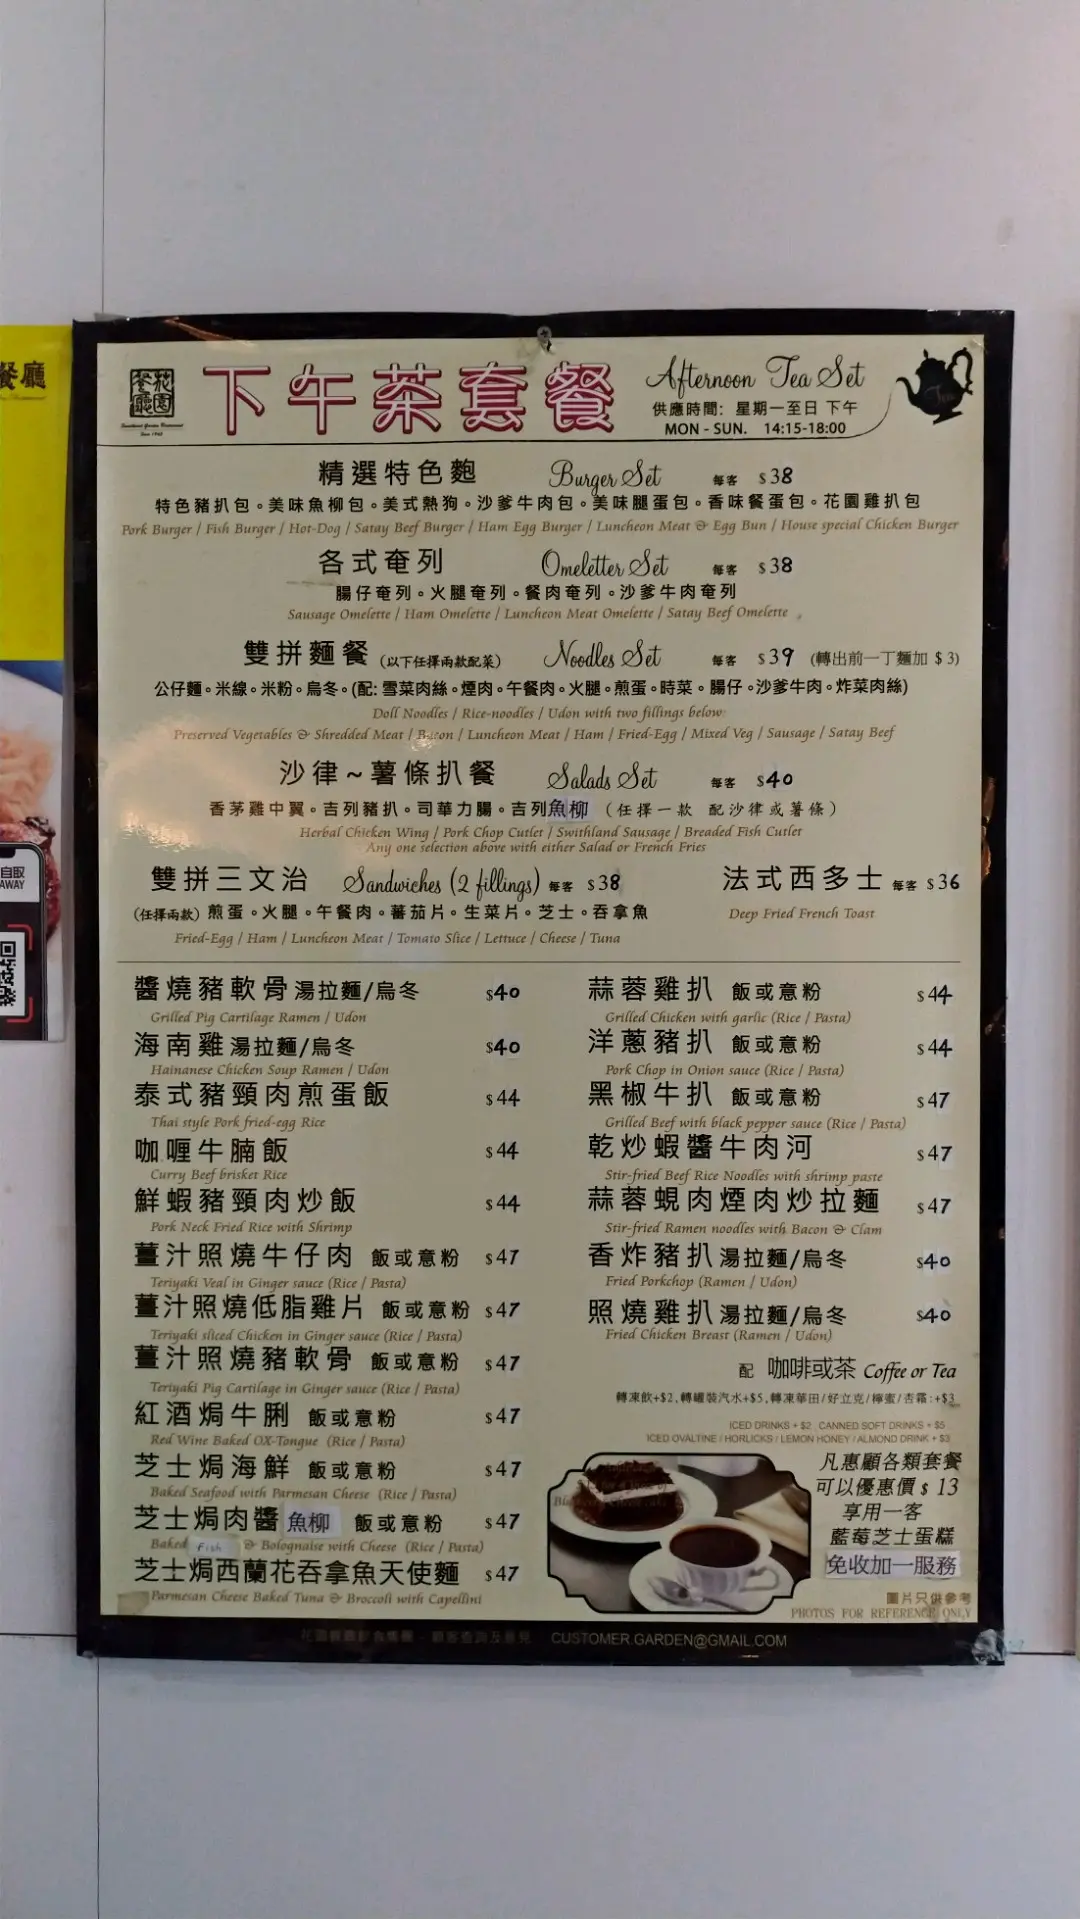 餐廳
花園餐廳
下午茶套餐
Afternoon Tea Set
供應時間: 星期一至日 下午
MON - SUN. 14:15-18:00
精選特色麭 Burger Set 每客 $38
特色豬扒包。美味魚柳包。美式熱狗。沙爹牛肉包。美味腿蛋包。香味餐蛋包。花園雞扒包
Pork Burger / Fish Burger / Hot-Dog / Satay Beef Burger / Ham Egg Burger / Luncheon Meat & Egg Bun / House special Chicken Burger
各式奄列 Omeletter Set 每客 $38
腸仔奄列。火腿奄列。餐肉奄列。沙爹牛肉奄列
Sausage Omelette / Ham Omelette / Luncheon Meat Omelette / Satay Beef Omelette
雙拼麵餐 (以下任擇兩款配菜) Noodles Set 每客 $39 (轉出前一丁麵加 $3)
公仔麵。米線。米粉。烏冬。(配: 雪菜肉絲。煙肉。午餐肉。火腿。煎蛋。時菜。腸仔。沙爹牛肉。炸菜肉絲)
Doll Noodles / Rice-noodles / Udon with two fillings below:
Preserved Vegetables & Shredded Meat / Bacon / Luncheon Meat / Ham / Fried-Egg / Mixed Veg / Sausage / Satay Beef
沙律~薯條扒餐 Salads Set 每客 $40
香茅雞中翼。吉列豬扒。司華力腸。吉列魚柳 (任擇一款 配沙律或薯條)
Herbal Chicken Wing / Pork Chop Cutlet / Swithland Sausage / Breaded Fish Cutlet
Any one selection above with either Salad or French Fries
雙拼三文治 Sandwiches (2 fillings) 每客 $38
(任擇兩款) 煎蛋。火腿。午餐肉。蕃茄片。生菜片。芝士。吞拿魚
Fried-Egg / Ham / Luncheon Meat / Tomato Slice / Lettuce / Cheese / Tuna
法式西多士 每客 $36
Deep Fried French Toast
醬燒豬軟骨湯拉麵/烏冬 $40
Grilled Pig Cartilage Ramen / Udon
海南雞湯拉麵/烏冬 $40
Hainanese Chicken Soup Ramen / Udon
泰式豬頸肉煎蛋飯 $44
Thai style Pork fried-egg Rice
咖喱牛腩飯 $44
Curry Beef brisket Rice
鮮蝦豬頸肉炒飯 $44
Pork Neck Fried Rice with Shrimp
薑汁照燒牛仔肉 飯或意粉 $47
Teriyaki Veal in Ginger sauce (Rice / Pasta)
薑汁照燒低脂雞片 飯或意粉 $47
Teriyaki sliced Chicken in Ginger sauce (Rice / Pasta)
薑汁照燒豬軟骨 飯或意粉 $47
Teriyaki Pig Cartilage in Ginger sauce (Rice / Pasta)
紅酒焗牛脷 飯或意粉 $47
Red Wine Baked OX-Tongue (Rice / Pasta)
芝士焗海鮮 飯或意粉 $47
Baked Seafood with Parmesan Cheese (Rice / Pasta)
芝士焗肉醬魚柳 飯或意粉 $47
Baked Fish & Bolognaise with Cheese (Rice / Pasta)
芝士焗西蘭花吞拿魚天使麵 $47
Parmesan Cheese Baked Tuna & Broccoli with Capellini
蒜蓉雞扒 飯或意粉 $44
Grilled Chicken with garlic (Rice / Pasta)
洋蔥豬扒 飯或意粉 $44
Pork Chop in Onion sauce (Rice / Pasta)
黑椒牛扒 飯或意粉 $47
Grilled Beef with black pepper sauce (Rice / Pasta)
乾炒蝦醬牛肉河 $47
Stir-fried Beef Rice Noodles with shrimp paste
蒜蓉蜆肉煙肉炒拉麵 $47
Stir-fried Ramen noodles with Bacon & Clam
香炸豬扒湯拉麵/烏冬 $40
Fried Porkchop (Ramen / Udon)
照燒雞扒湯拉麵/烏冬 $40
Fried Chicken Breast (Ramen / Udon)
配 咖啡或茶 Coffee or Tea
轉凍飲+$2,轉罐裝汽水+$5,轉凍華田/好立克/檸蜜/杏霜:+$3
ICED DRINKS + $2 CANNED SOFT DRINKS + $5
ICED OVALTINE / HORLICKS / LEMON HONEY / ALMOND DRINK + $3
凡惠顧各類套餐
可以優惠價 $ 13
享用一客
藍莓芝士蛋糕
免收加一服務
圖片只供參考
PHOTOS FOR REFERENCE ONLY
CUSTOMER.GARDEN@GMAIL.COM
自取
AWAY